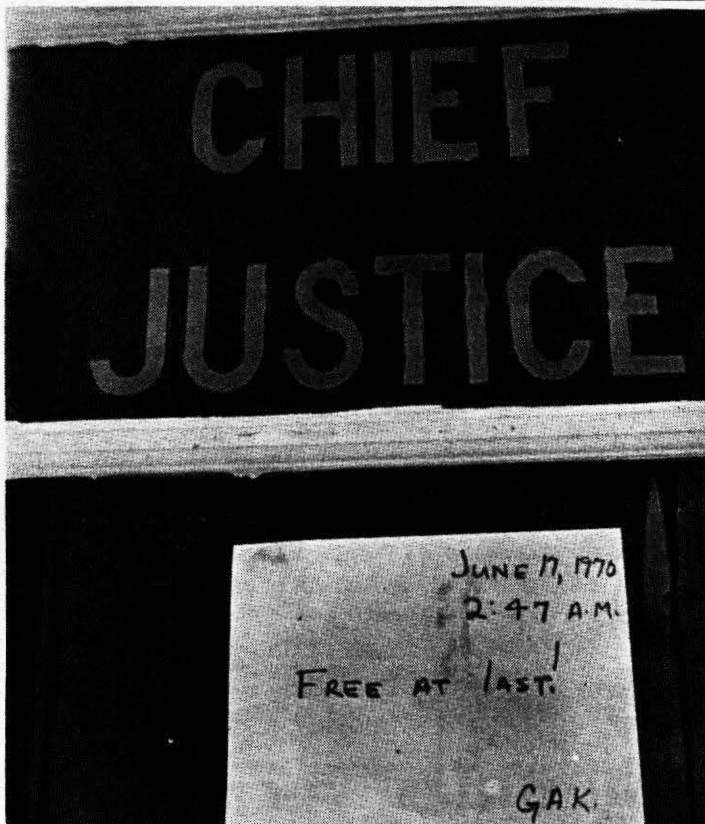 CHIEF
JUSTICE
JUNE 17, 1970
2:47 A.M.
FREE AT last!
GAK.